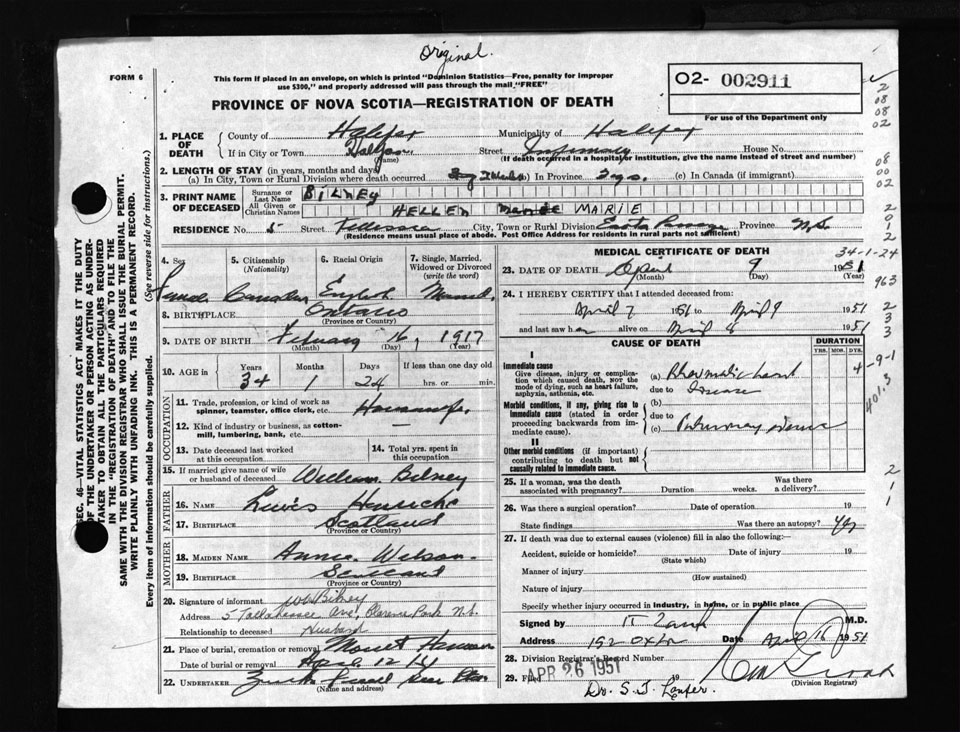 Original.
FORM 6
This form if placed in an envelope, on which is printed "Dominion Statistics—Free, penalty for improper
use $300," and properly addressed will pass through the mail "FREE"
O2- 002911
For use of the Department only
PROVINCE OF NOVA SCOTIA—REGISTRATION OF DEATH
1. PLACE OF DEATH { County of Halifax Municipality of Halifax
If in City or Town Halifax (Name) Street Infirmary House No.
(If death occurred in a hospital or institution, give the name instead of street and number)
2. LENGTH OF STAY (in years, months and days)
(a) In City, Town or Rural Division where death occurred (b) In Province (c) In Canada (if immigrant)
3. PRINT NAME OF DECEASED { Surname or Last Name BILNEY
All Given or Christian Names HELLEN MARIE
RESIDENCE No. 5 Street City, Town or Rural Division Province N.S.
(Residence means usual place of abode. Post Office Address for residents in rural parts not sufficient)
4. Sex 5. Citizenship (Nationality) 6. Racial Origin 7. Single, Married, Widowed or Divorced (write the word)
Female Canadian English Married
8. BIRTHPLACE Ontario
(Province or Country)
9. DATE OF BIRTH February 16, 1917
(Month) (Day) (Year)
10. AGE in { Years Months Days If less than one day old
34 1 24 hrs. or min.
OCCUPATION
11. Trade, profession or kind of work as spinner, teamster, office clerk, etc. Housewife
12. Kind of industry or business, as cotton-mill, lumbering, bank, etc. —
13. Date deceased last worked at this occupation 14. Total yrs. spent in this occupation
15. If married give name of wife or husband of deceased William Bilney
FATHER
16. NAME Lewis
17. BIRTHPLACE Scotland
(Province or Country)
MOTHER
18. MAIDEN NAME Annie Wilson
19. BIRTHPLACE Scotland
(Province or Country)
20. Signature of informant Wm Bilney
Address 5 Tallahassee Ave, Clarence Park N.S.
Relationship to deceased Husband
21. Place of burial, cremation or removal Mount
Date of burial or removal April 12
22. UNDERTAKER
(Name and address)
MEDICAL CERTIFICATE OF DEATH
34-1-24
23. DATE OF DEATH April 9 1951
(Month) (Day) (Year)
24. I HEREBY CERTIFY that I attended deceased from
April 7 1951 to April 9 1951
and last saw her alive on April 8 1951
CAUSE OF DEATH
DURATION
YRS. MOS. DYS.
I
Immediate cause
Give disease, injury or complication which caused death, NOT the mode of dying, such as heart failure, asphyxia, asthenia, etc.
(a) Rheumatic heart
due to disease
(b)
Morbid conditions, if any, giving rise to immediate cause (stated in order proceeding backwards from immediate cause).
due to
(c) Pulmonary
II
Other morbid conditions (if important) contributing to death but not causally related to immediate cause.
25. If a woman, was the death associated with pregnancy? Duration weeks. Was there a delivery?
26. Was there a surgical operation? Date of operation 19
State findings Was there an autopsy? Yes
27. If death was due to external causes (violence) fill in also the following:—
Accident, suicide or homicide? Date of injury 19
(State which)
Manner of injury
(How sustained)
Nature of injury
Specify whether injury occurred in industry, in home, or in public place
Signed by M.D.
Address 192 Oxford Date April 16 1951
28. Division Registrar's Record Number
29. Filed APR 26 1951 19
(Division Registrar)
Dr. S. J.
SEC. 46—VITAL STATISTICS ACT MAKES IT THE DUTY
OF THE UNDERTAKER OR PERSON ACTING AS UNDER-
TAKER TO OBTAIN ALL THE PARTICULARS REQUIRED
IN THE "REGISTRATION OF DEATH" AND TO FILE THE
SAME WITH THE DIVISION REGISTRAR WHO SHALL ISSUE THE BURIAL PERMIT.
WRITE PLAINLY WITH UNFADING INK. THIS IS A PERMANENT RECORD.
Every item of information should be carefully supplied. (See reverse side for instructions.)
2
08
08
02
08
00
02
2
0
1
2
963
2
3
3
4-9-1
401.3
2
1
1